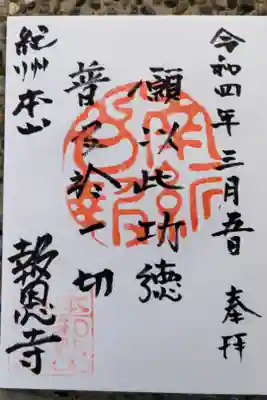 奉拝
令和四年三月五日
願以此功徳
普及於一切
紀州本山
報恩寺